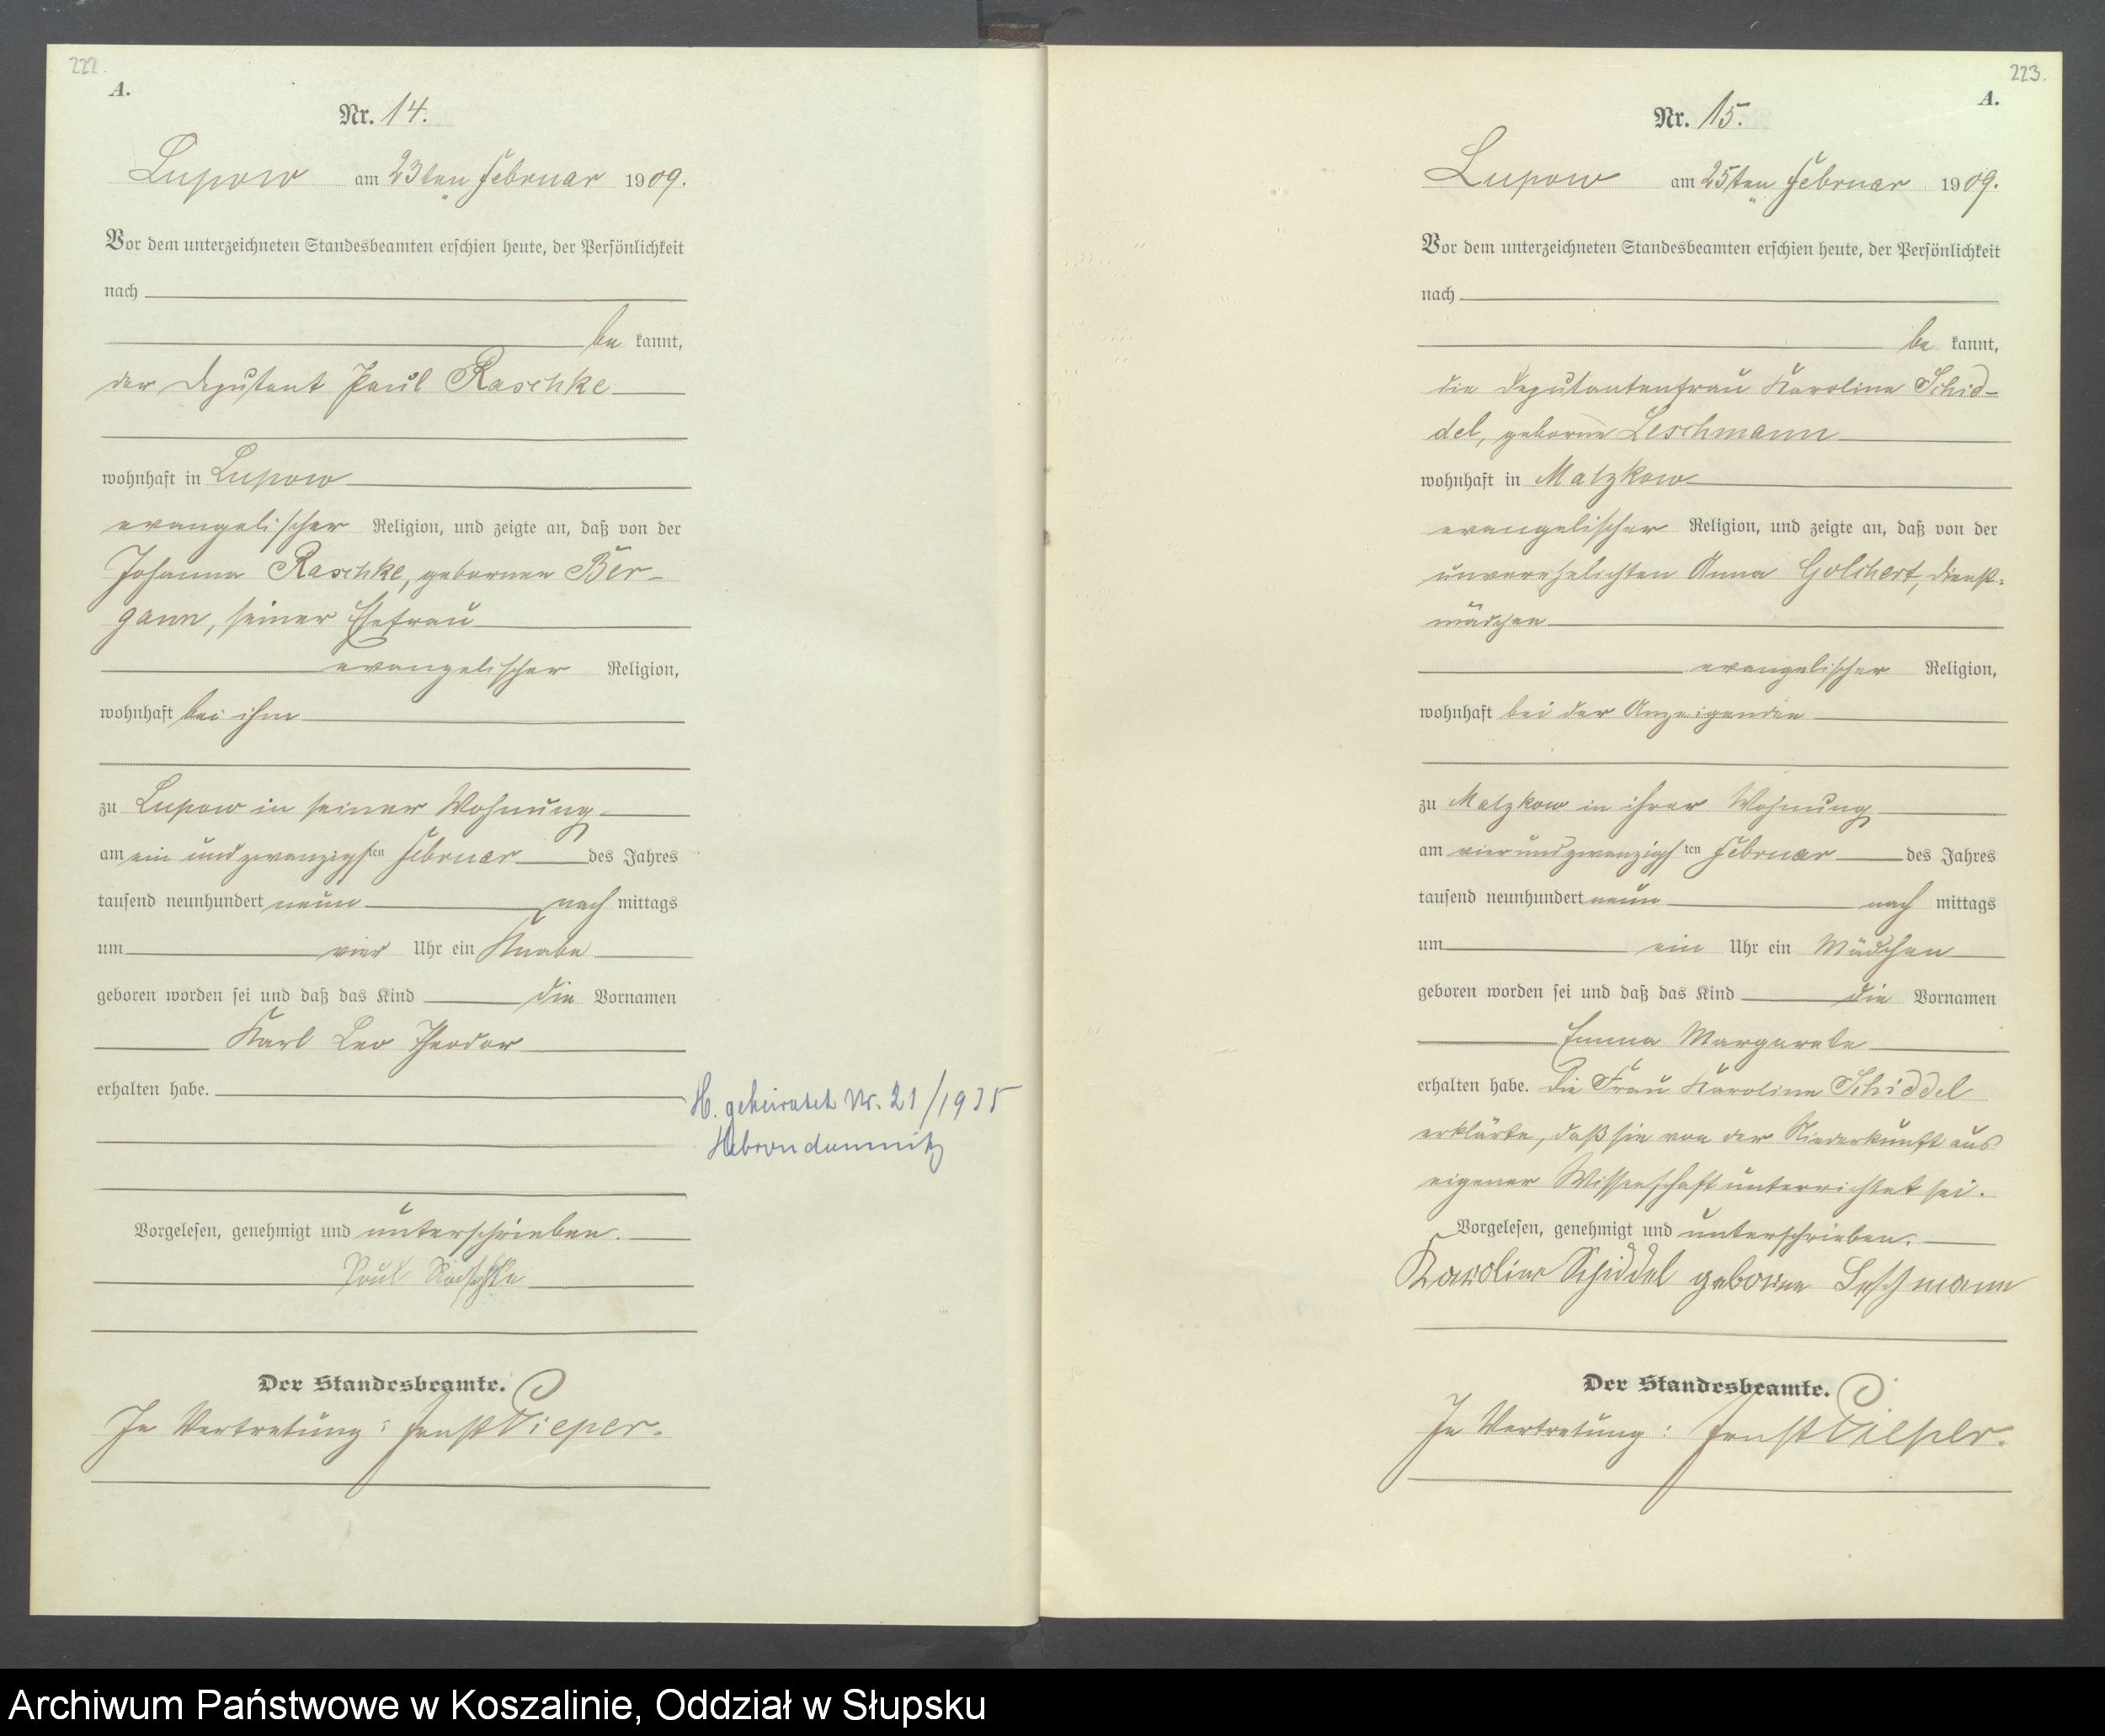 222.
A.
Nr. 14.
Lupow am 23ten Februar 1909.
Vor dem unterzeichneten Standesbeamten erschien heute, der Persönlichkeit
nach
be kannt,
der Deputant Paul Raschke
wohnhaft in Lupow
evangelischer Religion, und zeigte an, daß von der
Johanna Raschke, gebornen Ber-
gann, seiner Ehefrau
evangelischer Religion,
wohnhaft bei ihm
zu Lupow in seiner Wohnung
am ein und zwanzigsten Februar des Jahres
tausend neunhundert neun nach mittags
um vier Uhr ein Knabe
geboren worden sei und daß das Kind die Vornamen
Karl Leo Theodor
erhalten habe.
H. geheiratet Nr. 21/1935
Hebrondamnitz
Vorgelesen, genehmigt und unterschrieben.
Paul Raschke
Der Standesbeamte.
In Vertretung: Ernst Pieper.
223.
A.
Nr. 15.
Lupow am 25ten Februar 1909.
Vor dem unterzeichneten Standesbeamten erschien heute, der Persönlichkeit
nach
be kannt,
die Deputantenfrau Karoline Schid-
del, geborne Leschmann
wohnhaft in Malzkow
evangelischer Religion, und zeigte an, daß von der
unverehelichten Anna Golchert, Dienst-
mädchen
evangelischer Religion,
wohnhaft bei der Anzeigenden
zu Malzkow in ihrer Wohnung
am vier und zwanzigsten Februar des Jahres
tausend neunhundert neun nach mittags
um ein Uhr ein Mädchen
geboren worden sei und daß das Kind die Vornamen
Emma Margarete
erhalten habe. Die Frau Karoline Schiddel
erklärte, daß sie von der Niederkunft aus
eigener Wissenschaft unterrichtet sei.
Vorgelesen, genehmigt und unterschrieben.
Karoline Schiddel geborne Leschmann
Der Standesbeamte.
In Vertretung: Ernst Pieper.
Archiwum Państwowe w Koszalinie, Oddział w Słupsku